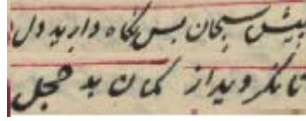 پیش سبحان بس نگاه دارید دل
تا نگردید از گمان بد خجل